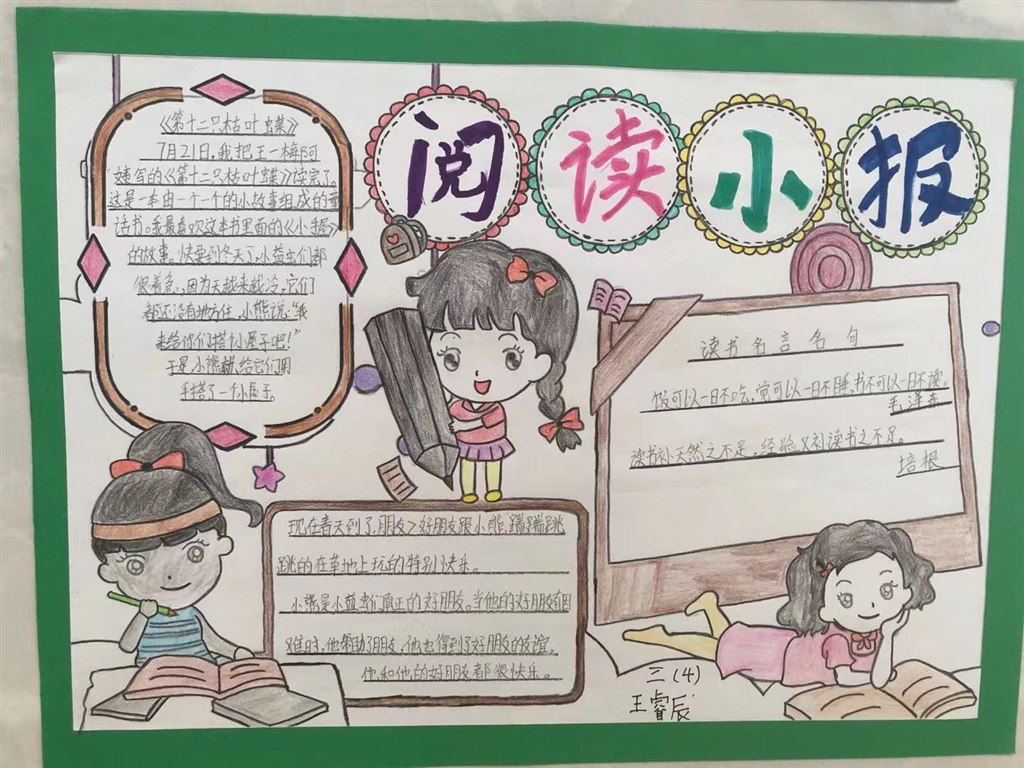 阅读小报
《第十二只枯叶蝶》
7月21日,我把王一梅阿
姨写的《第十二只枯叶蝶》读完了。
这是一本由一个一个的小故事组成的童
话书。我最喜欢这本书里面的《小熊》
的故事。快要到冬天了,小益虫们都
很着急,因为天越来越冷,它们
都还没有地方住,小熊说:“我
来给你们搭个小屋子吧!”
于是小熊就给它们用
手搭了一个小屋子。
现在春天到了,朋友们好朋友跟小熊,蹦蹦跳
跳的在草地上玩的特别快乐。
小熊是小益虫们真正的好朋友。当他的好朋友有困
难时,他帮助朋友,他也得到了好朋友的友谊。
他和他的好朋友都很快乐。
读书名言名句
饭可以一日不吃,觉可以一日不睡,书不可以一日不读。
毛泽东
读书补天然之不足,经验又补读书之不足。
培根
三(4)
王睿辰